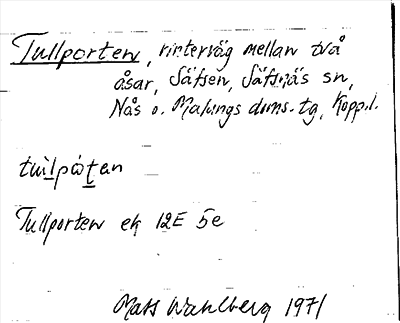 Tullporten, vinterväg mellan två
åsar, Säfsen, Säfsnäs sn,
Nås o. Malungs doms. tg, Kopp.l.
tulpòtan
Tullporten ek 12E 5e
Mats Wahlberg 1971